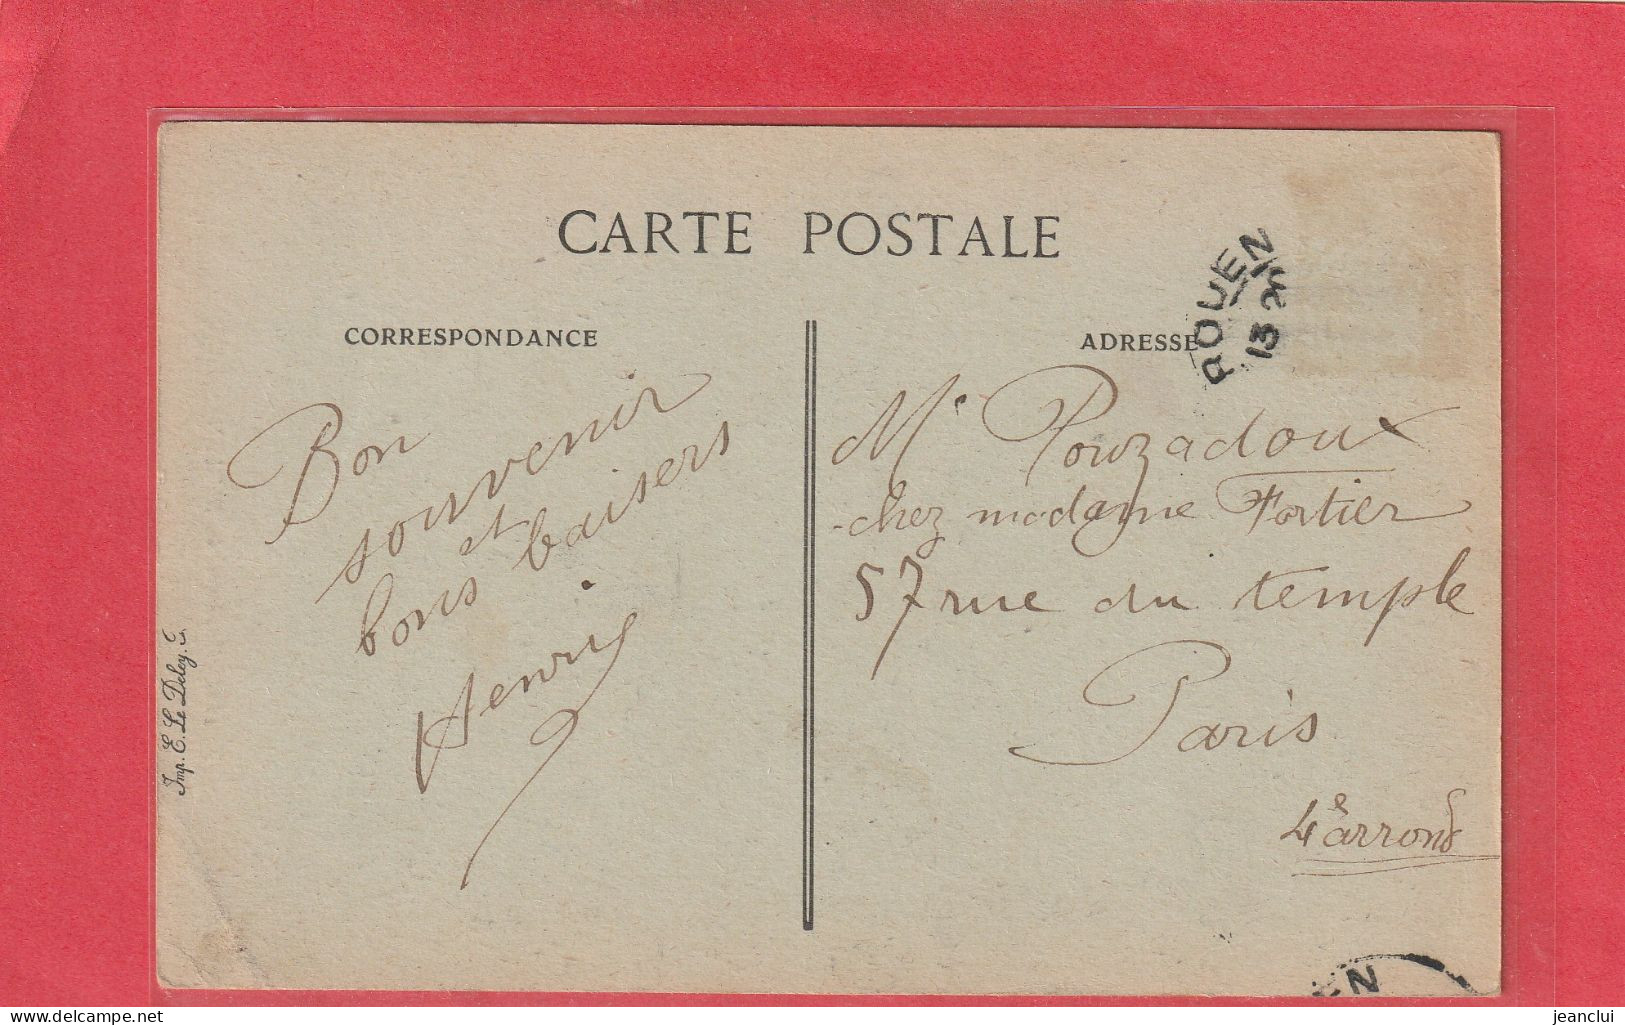 CARTE POSTALE
CORRESPONDANCE
Bon
souvenir
et
bons baisers
Henry
Imp. E. Le Deley.
ADRESSE
ROUEN
13
Mr Pouzadoux
chez madame Fortier
57 rue du temple
Paris
4e arrond
EN
delcampe.net
jeanclui